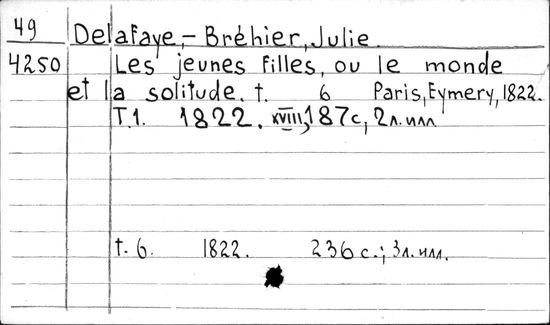 49 Delafaye,- Bréhier, Julie.
4250 Les jeunes filles, ou le monde
et la solitude. t. 6 Paris, Eymery, 1822.
T.1. 1822. XVIII, 187 с., 2 л. илл
t. 6. 1822. 236 с.; 3 л. илл.